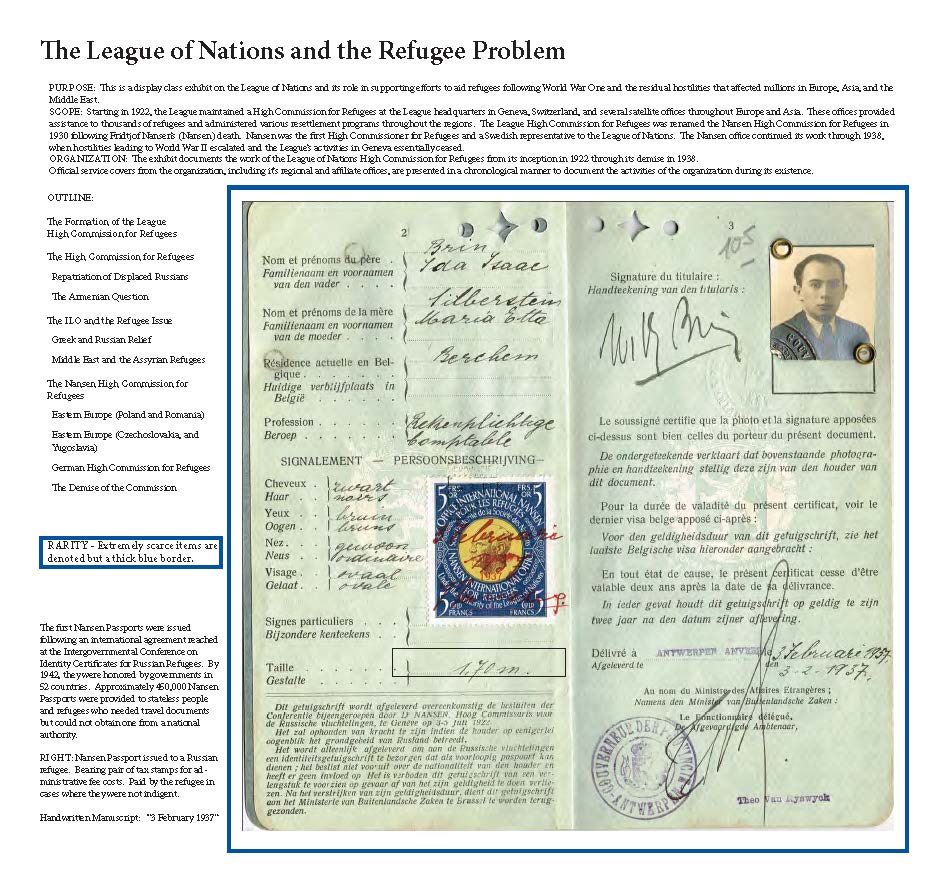 The League of Nations and the Refugee Problem
PURPOSE: This is a display class exhibit on the League of Nations and its role in supporting efforts to aid refugees following World War One and the residual hostilities that affected millions in Europe, Asia, and the
Middle East.
SCOPE: Starting in 1922, the League maintained a High Commission for Refugees at the League headquarters in Geneva, Switzerland, and several satellite offices throughout Europe and Asia. These offices provided
assistance to thousands of refugees and administered various resettlement programs throughout the regions. The League High Commission for Refugees was renamed the Nansen High Commission for Refugees in
1930 following Fridtjof Nansen's (Nansen) death. Nansen was the first High Commissioner for Refugees and a Swedish representative to the League of Nations. The Nansen office continued its work through 1938,
when hostilities leading to World War II escalated and the League's activities in Geneva essentially ceased.
ORGANIZATION: The exhibit documents the work of the League of Nations High Commission for Refugees from its inception in 1922 through its demise in 1938.
Official service covers from the organization, including it's regional and affiliate offices, are presented in a chronological manner to document the activities of the organization during its existence.
OUTLINE:
The Formation of the League
High Commission for Refugees
The High Commission for Refugees
Repatriation of Displaced Russians
The Armenian Question
The ILO and the Refugee Issue
Greek and Russian Relief
Middle East and the Assyrian Refugees
The Nansen High Commission for
Refugees
Eastern Europe (Poland and Romania)
Eastern Europe (Czechoslovakia, and
Yugoslavia)
German High Commission for Refugees
The Demise of the Commission
RARITY - Extremely scarce items are
denoted but a thick blue border.
The first Nansen Passports were issued
following an international agreement reached
at the Intergovernmental Conference on
Identity Certificates for Russian Refugees. By
1942, they were honored by governments in
52 countries. Approximately 450,000 Nansen
Passports were provided to stateless people
and refugees who needed travel documents
but could not obtain one from a national
authority.
RIGHT: Nansen Passport issued to a Russian
refugee. Bearing pair of tax stamps for ad-
ministrative fee costs. Paid by the refugee in
cases where they were not indigent.
Handwritten Manuscript: "3 February 1937"
2
Nom et prénoms du père . Brin
Familienaam en voornamen Ida Isaac
van den vader . . . . .
Nom et prénoms de la mère Silberstein
Familienaam en voornamen Maria Etta
van de moeder . . . . .
Résidence actuelle en Bel- Berchem
gique . . . . . . . .
Huidige verblijfplaats in
België . . . . . . . .
Profession . . . . . . . Rekenplichtige
Beroep . . . . . . . . Comptable
SIGNALEMENT — PERSOONSBESCHRIJVING
Cheveux . zwart
Haar . . noirs
Yeux . . bruin
Oogen . . bruns
Nez . . . gewoon
Neus . . ordinaire
Visage . . ovaal
Gelaat . . ovale
5 FRS. OR FRS. OR 5
OFFICE INTERNATIONAL NANSEN
POUR LES REFUGIES
3 Februari
1937
5 GOLD FRANCS GOLD FRANCS 5
Signes particuliers
Bijzondere kenteekens . .
Taille . . . . . . . . 1,70 m.
Gestalte . . . . . . .
Dit getuigschrift wordt afgeleverd overeenkomstig de besluiten der
Conferentie bijeengeroepen door Dr NANSEN, Hoog Commissaris voor
de Russische vluchtelingen, te Genève op 3-5 Juli 1922.
Het zal ophouden van kracht te zijn indien de houder op eenigerlei
oogenblik het grondgebied van Rusland betreedt.
Het wordt alleenlijk afgeleverd om aan de Russische vluchtelingen
een identiteitsgetuigschrift te bezorgen dat als voorloopig paspoort kan
dienen ; het beslist niet vooruit over de nationaliteit van den houder en
heeft er geen invloed op. Het is verboden dit getuigschrift van een ver-
lengstuk te voorzien op gevaar af van het zijn geldigheid te doen verlie-
zen. Na het verstrijken van zijn geldigheidsduur, dient dit getuigschrift
aan het Ministerie van Buitenlandsche Zaken te Brussel te worden terug-
gezonden.
3
10 5
Signature du titulaire :
Handteekening van den titularis :
Le soussigné certifie que la photo et la signature apposées
ci-dessus sont bien celles du porteur du présent document.
De ondergeteekende verklaart dat bovenstaande photogra-
phie en handteekening stellig deze zijn van den houder van
dit document.
Pour la durée de validité du présent certificat, voir le
dernier visa belge apposé ci-après :
Voor den geldigheidsduur van dit getuigschrift, zie het
laatste Belgische visa hieronder aangebracht :
En tout état de cause, le présent certificat cesse d'être
valable deux ans après la date de sa délivrance.
In ieder geval houdt dit getuigschrift op geldig te zijn
twee jaar na den datum zijner aflevering.
Délivré à ANTWERPEN ANVERS le 3 Februari 1937.
Afgeleverd te den 3-2-1937.
Au nom du Ministre des Affaires Etrangères ;
Namens den Minister van Buitenlandsche Zaken :
Le Fonctionnaire délégué,
De Afgevaardigde Ambtenaar,
ANTWERPEN
Theo Van Ryswyck